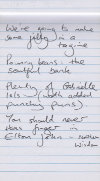 We're going to make
some jelly in a
tagine
Pawny beans: the
soulful bank
Plenty of Gabrielle
lols - with added
punchy puns)
You should never
 finger in
Elton John -
Wisdom